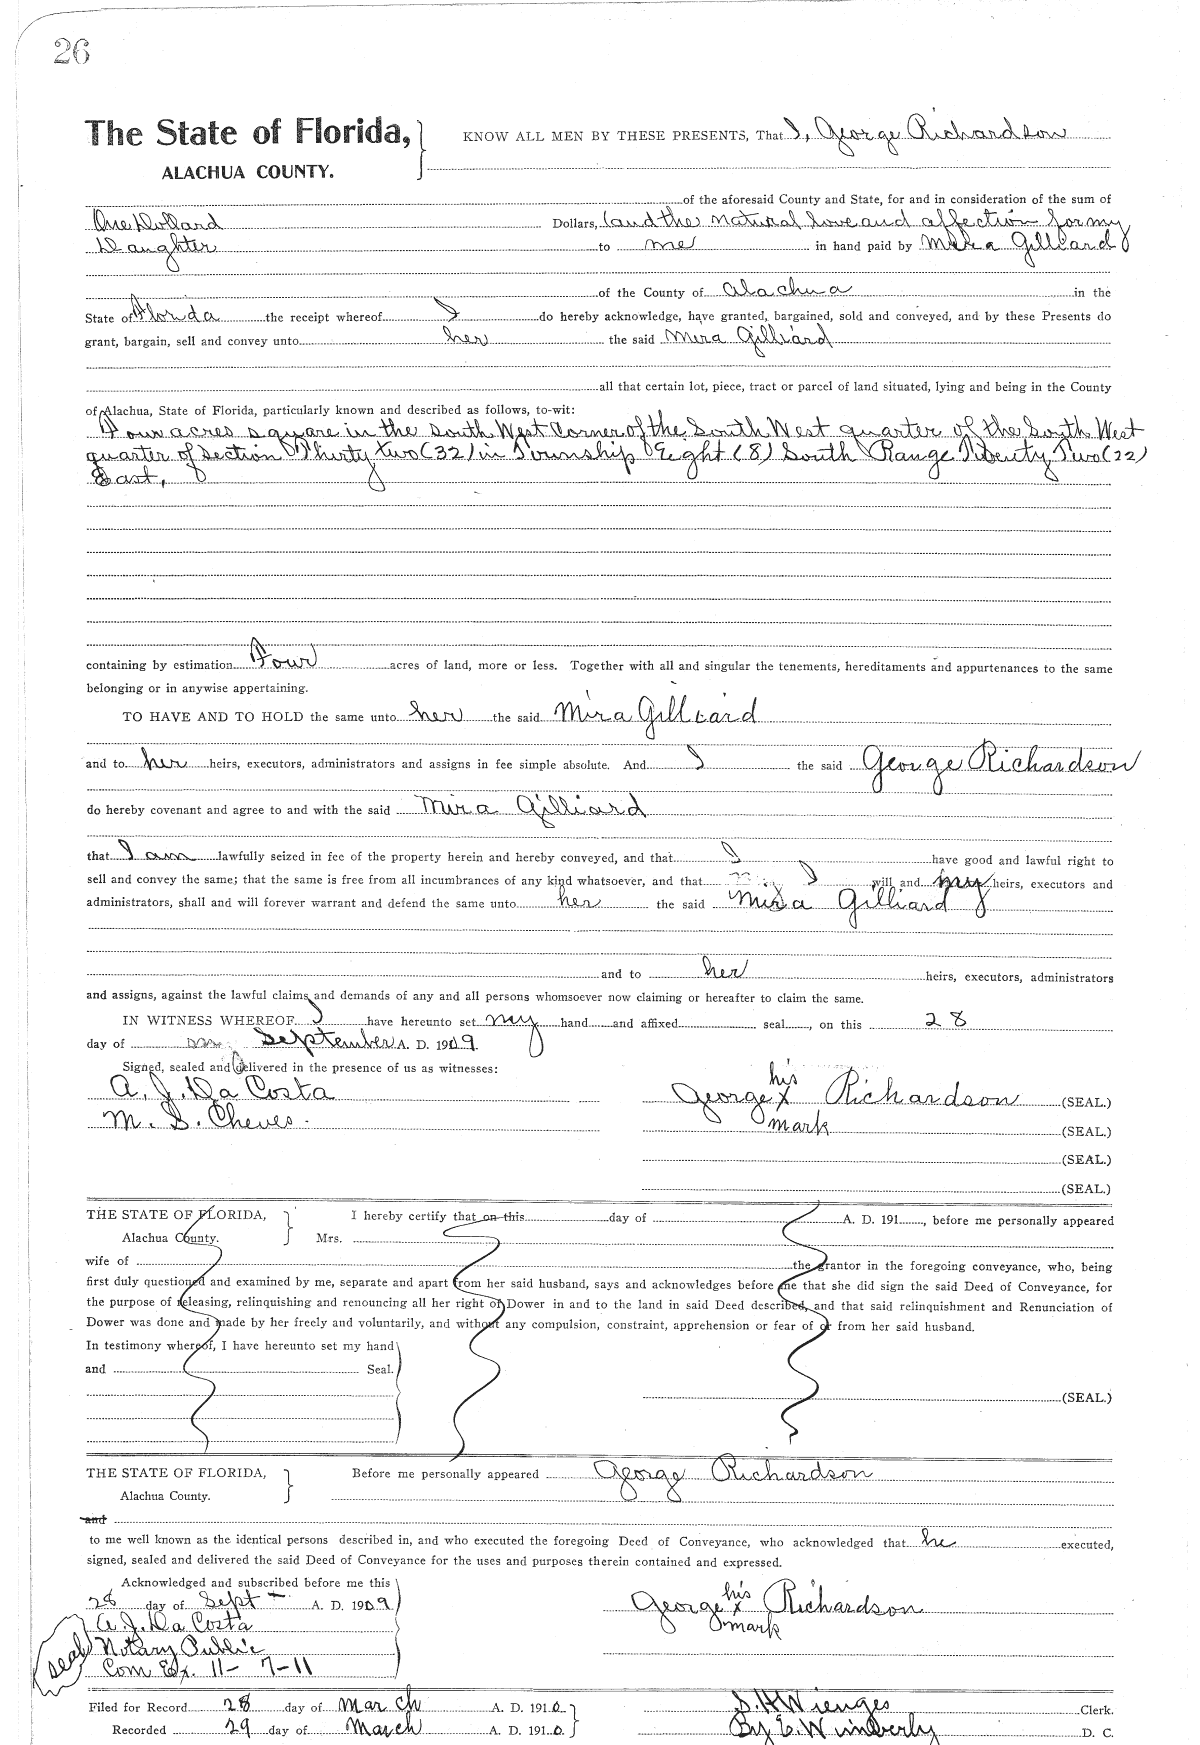 26
The State of Florida, KNOW ALL MEN BY THESE PRESENTS, That I, George Richardson
ALACHUA COUNTY.
of the aforesaid County and State, for and in consideration of the sum of
One Dollard Dollars, (and the natural love and affection for my
Daughter to me in hand paid by Mira Gilliard
of the County of Alachua in the
State of Florida the receipt whereof I do hereby acknowledge, have granted, bargained, sold and conveyed, and by these Presents do
grant, bargain, sell and convey unto her the said Mira Gilliard
all that certain lot, piece, tract or parcel of land situated, lying and being in the County
of Alachua, State of Florida, particularly known and described as follows, to-wit:
Four acres square in the South West Corner of the South West quarter of the South West
quarter of Section Thirty two (32) in Township Eight (8) South Range Twenty Two (22)
East,
containing by estimation Four acres of land, more or less. Together with all and singular the tenements, hereditaments and appurtenances to the same
belonging or in anywise appertaining.
TO HAVE AND TO HOLD the same unto her the said Mira Gilliard
and to her heirs, executors, administrators and assigns in fee simple absolute. And I the said George Richardson
do hereby covenant and agree to and with the said Mira Gilliard
that I am lawfully seized in fee of the property herein and hereby conveyed, and that I have good and lawful right to
sell and convey the same; that the same is free from all incumbrances of any kind whatsoever, and that I will and my heirs, executors and
administrators, shall and will forever warrant and defend the same unto her the said Mira Gilliard
and to her heirs, executors, administrators
and assigns, against the lawful claims and demands of any and all persons whomsoever now claiming or hereafter to claim the same.
IN WITNESS WHEREOF, I have hereunto set my hand and affixed seal, on this 28
day of September A. D. 1909.
Signed, sealed and delivered in the presence of us as witnesses:
his
A. J. Da Costa George X Richardson (SEAL.)
M. S. Cheves. mark (SEAL.)
(SEAL.)
(SEAL.)
THE STATE OF FLORIDA, I hereby certify that on this day of A. D. 191 , before me personally appeared
Alachua County. Mrs.
wife of the grantor in the foregoing conveyance, who, being
first duly questioned and examined by me, separate and apart from her said husband, says and acknowledges before me that she did sign the said Deed of Conveyance, for
the purpose of releasing, relinquishing and renouncing all her right of Dower in and to the land in said Deed described, and that said relinquishment and Renunciation of
Dower was done and made by her freely and voluntarily, and without any compulsion, constraint, apprehension or fear of or from her said husband.
In testimony whereof, I have hereunto set my hand
and Seal.
(SEAL.)
THE STATE OF FLORIDA, Before me personally appeared George Richardson
Alachua County.
and
to me well known as the identical persons described in, and who executed the foregoing Deed of Conveyance, who acknowledged that he executed,
signed, sealed and delivered the said Deed of Conveyance for the uses and purposes therein contained and expressed.
Acknowledged and subscribed before me this
his
28 day of Sept A. D. 1909 George X Richardson
A. J. Da Costa mark
seal Notary Public
Com Ex. 11-7-11
Filed for Record 28 day of March A. D. 1910. S. H. Wienges Clerk.
Recorded 29 day of March A. D. 1910. By E. Wimberly D. C.